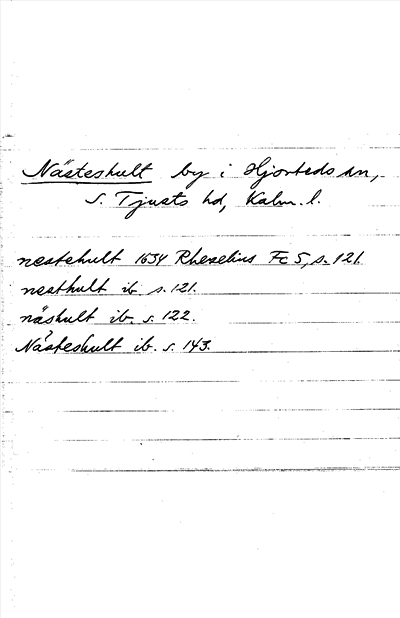 Nästeshult by i Hjorteds sn,
S. Tjusts hd, Kalm. l.
nestehult 1634 Rhezelius Fc 5, s. 121.
nesthult ib s. 121.
näshult ib. s. 122.
Nästeshult ib. s. 143.